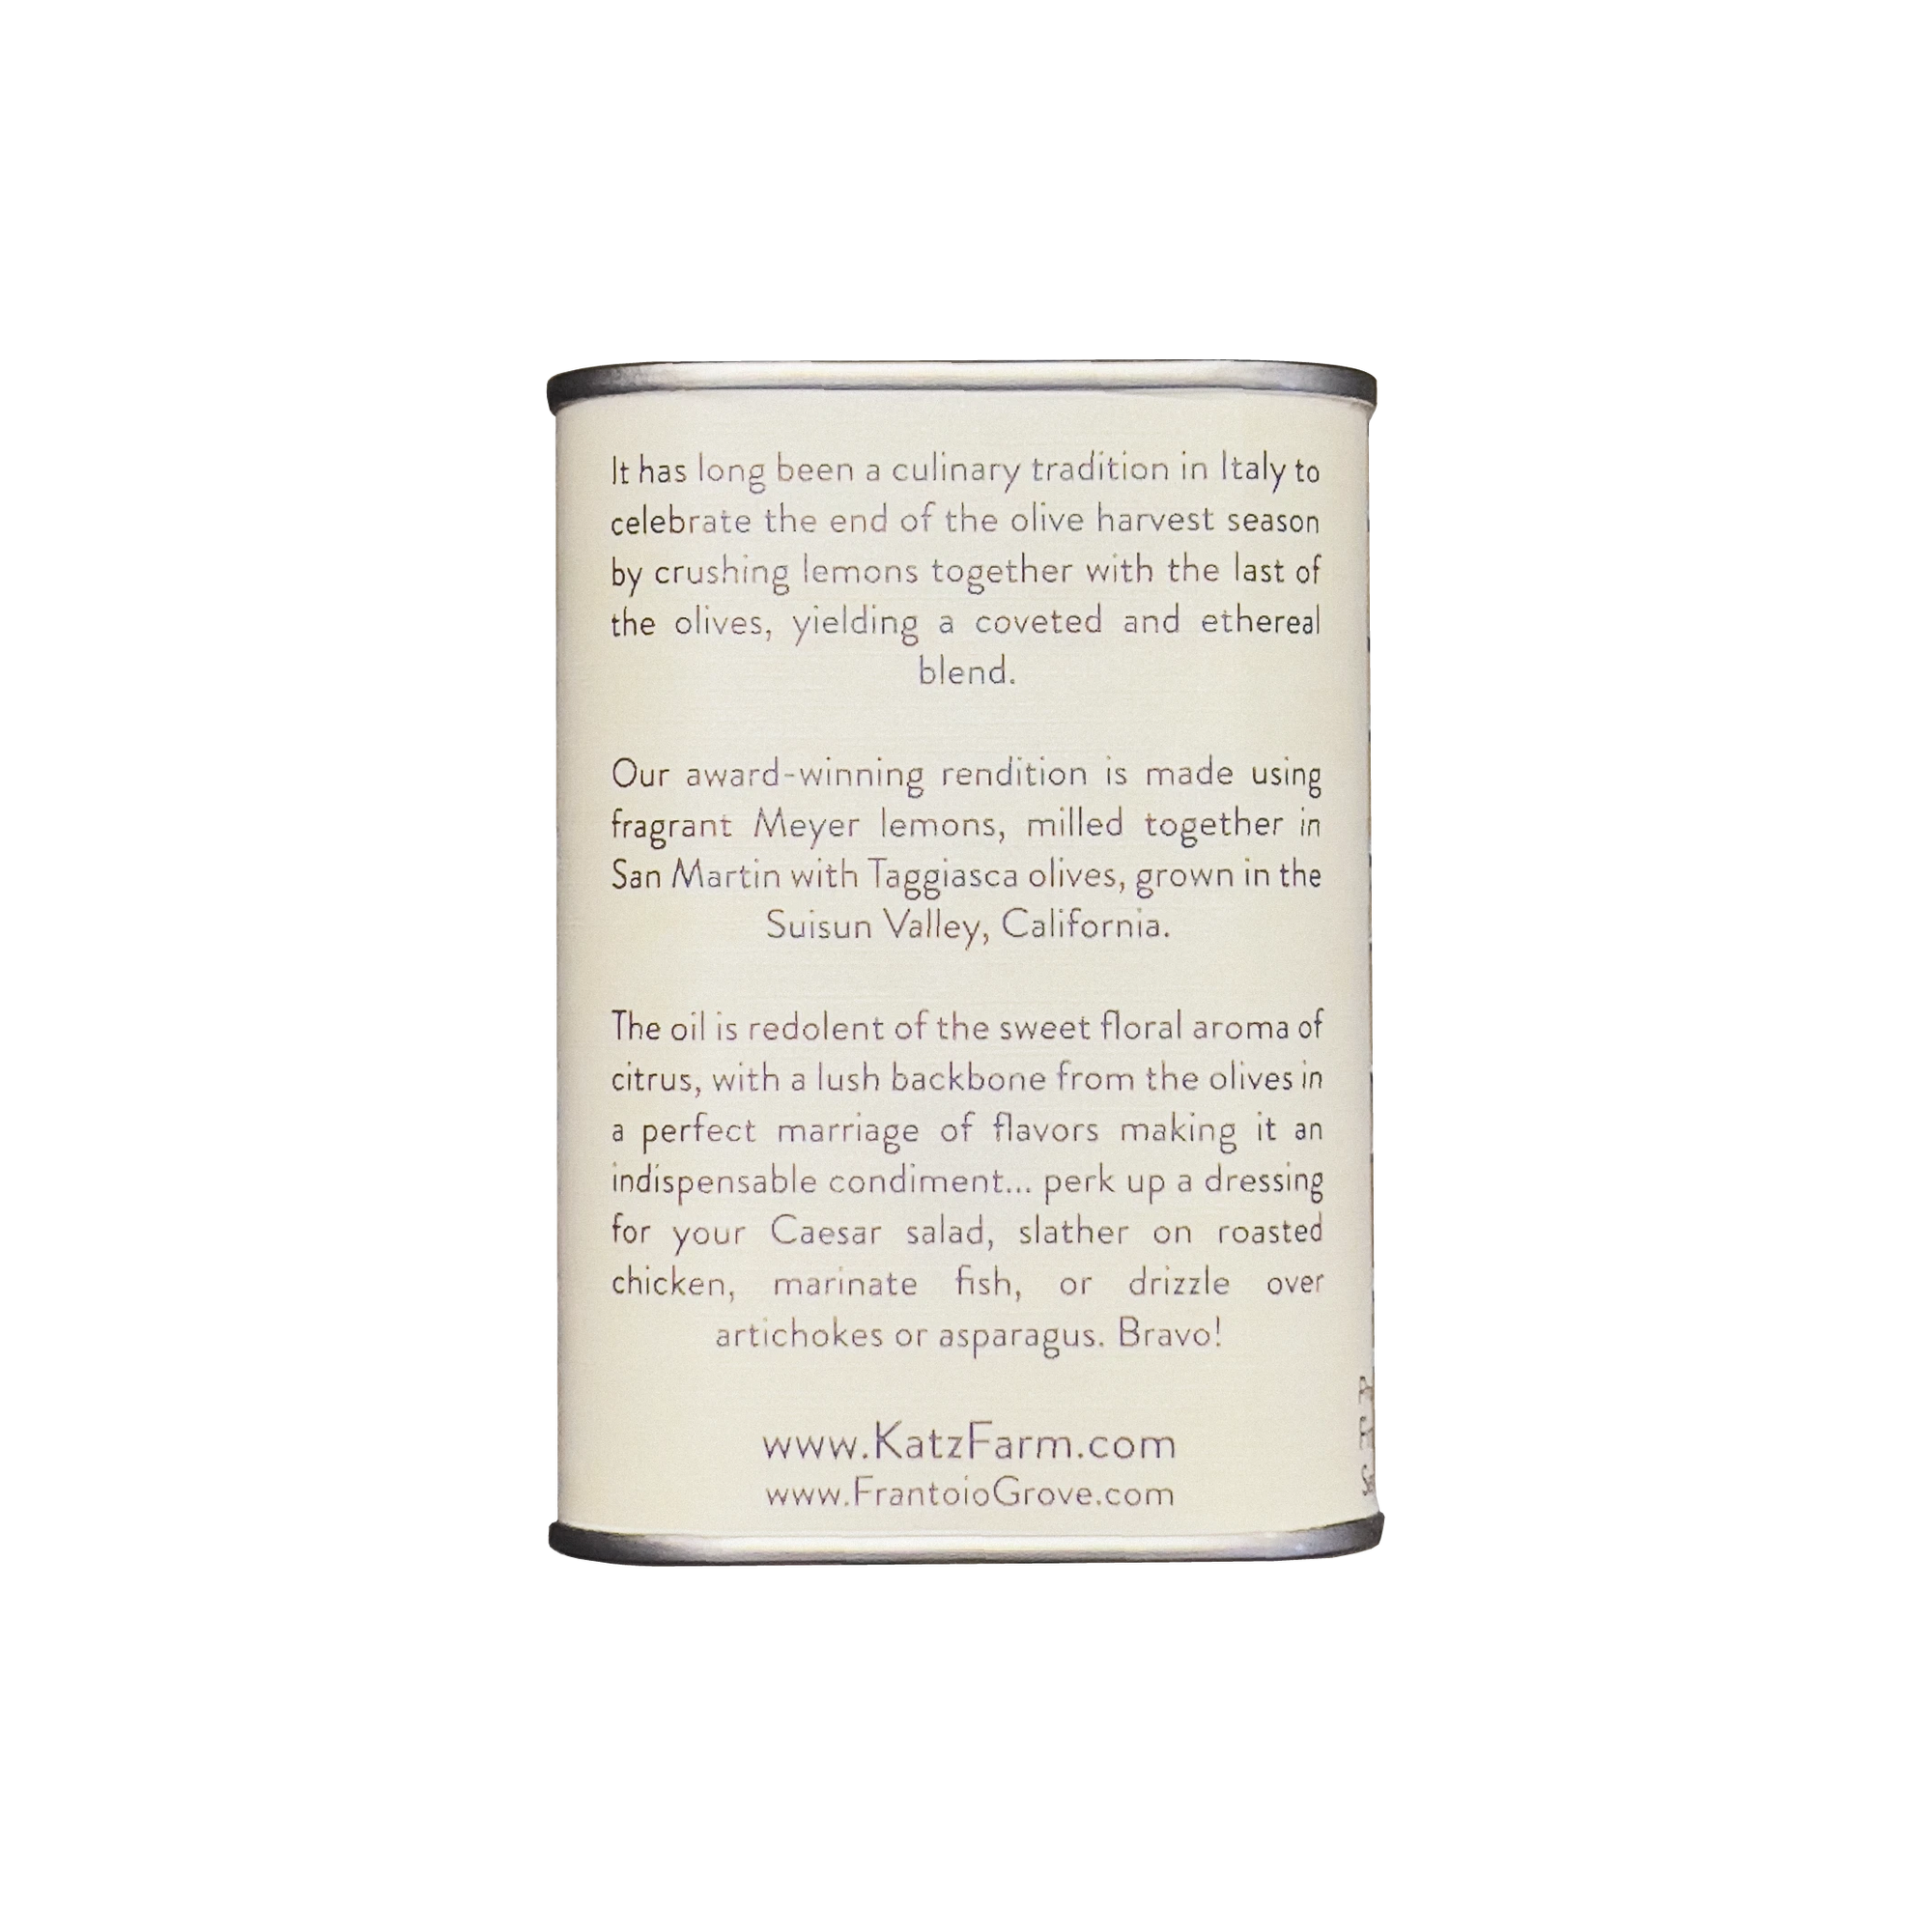 It has long been a culinary tradition in Italy to
celebrate the end of the olive harvest season
by crushing lemons together with the last of
the olives, yielding a coveted and ethereal
blend.
Our award-winning rendition is made using
fragrant Meyer lemons, milled together in
San Martin with Taggiasca olives, grown in the
Suisun Valley, California.
The oil is redolent of the sweet floral aroma of
citrus, with a lush backbone from the olives in
a perfect marriage of flavors making it an
indispensable condiment... perk up a dressing
for your Caesar salad, slather on roasted
chicken, marinate fish, or drizzle over
artichokes or asparagus. Bravo!
www.KatzFarm.com
www.FrantoioGrove.com